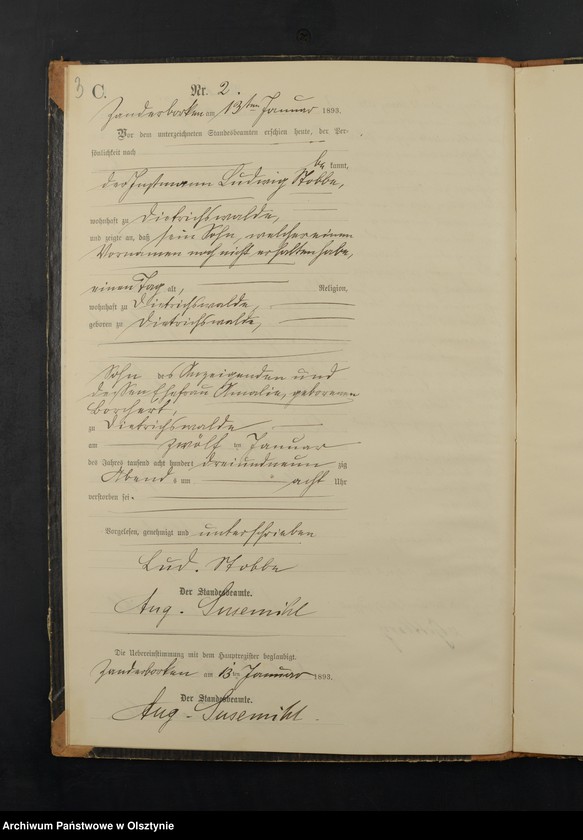 3
C.
Nr. 2.
Zanderborken am 13ten Januar 1893.
Vor dem unterzeichneten Standesbeamten erschien heute, der Per-
sönlichkeit nach
be kannt,
der Instmann Ludwig Stobbe,
wohnhaft zu Dietrichswalde,
und zeigte an, daß sein Sohn, welcher einen
Vornamen noch nicht erhalten habe,
einen Tag alt, Religion,
wohnhaft zu Dietrichswalde,
geboren zu Dietrichswalde,
Sohn des Anzeigenden und
dessen Ehefrau Amalie, geborenen
Borchert,
zu Dietrichswalde
am zwölf ten Januar
des Jahres tausend acht hundert dreiundneun zig
Abend s um acht Uhr
verstorben sei.
Vorgelesen, genehmigt und unterschrieben
Lud. Stobbe
Der Standesbeamte.
Aug. Susemihl
Die Uebereinstimmung mit dem Hauptregister beglaubigt.
Zanderborken am 13ten Januar 1893.
Der Standesbeamte.
Aug. Susemihl.
Archiwum Państwowe w Olsztynie